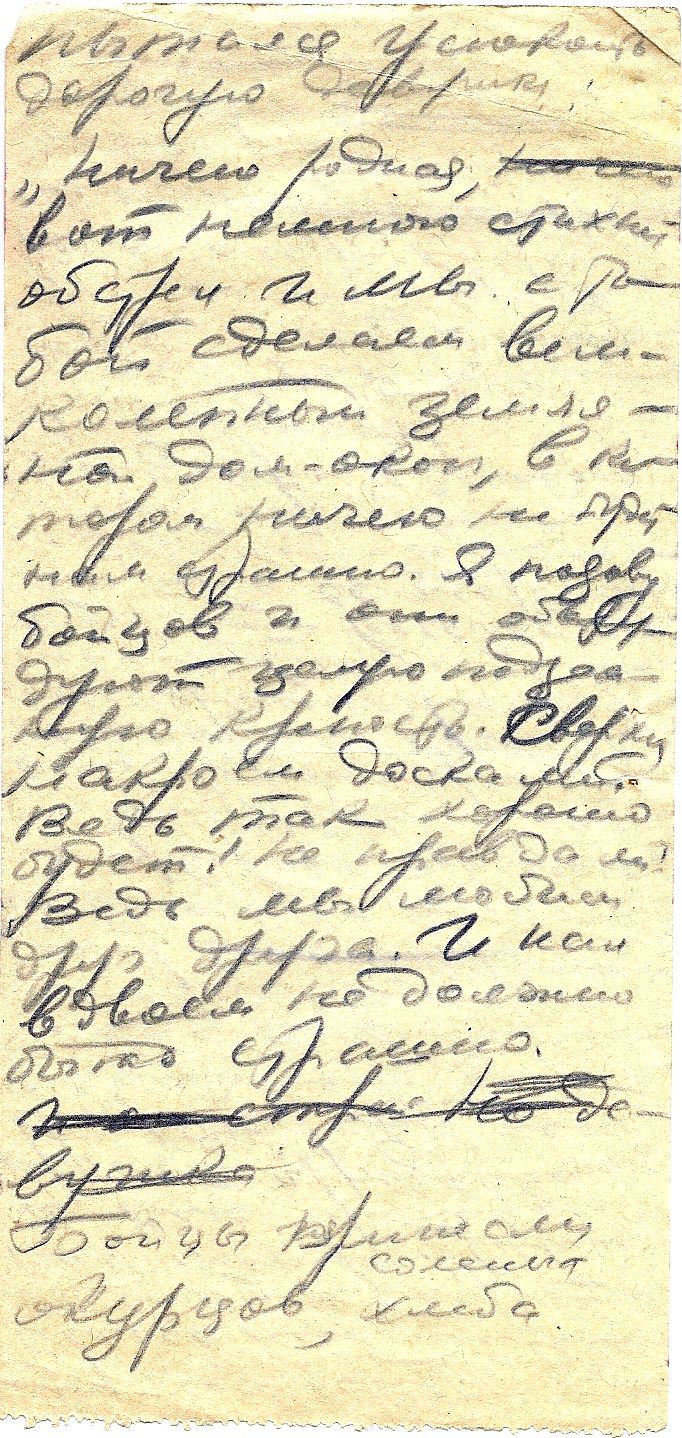 пытался успокоить
дорогую девушку:
„Ничего родная, ничего
вот немного стихнет
обстрел и мы с то-
бой сделаем вели-
колепный земля-
ной дом-окоп, в ко-
тором ничего не будет
нам страшно. Я позову
бойцов и они обору-
дуют целую подзем-
ную крепость. Сверху
накроем досками.
Ведь так хорошо
будет! Не правда ли?
Ведь мы любим
друг друга. И нам
вдвоем не должно
быть страшно.
Но де-
вушка
Бойцы принесли
соленых
огурцов, хлеба